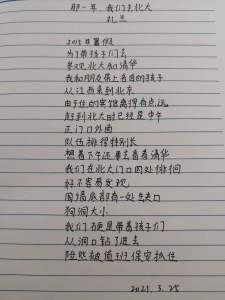 那一年，我们去北大
孔岂
2015年暑假
为了带孩子们去
参观北大和清华
我和朋友带上各自的孩子
从江西来到北京
由于住的宾馆离得有点远
赶到北大时已经是中午
正门口外面
队伍排得特别长
想着下午还要去看看清华
我们在北大门口四处徘徊
好不容易发现
围墙底部有一处缺口
狗洞大小
我们硬是带着孩子们
从洞口钻了进去
险些被值班保安抓住
2021.3.25